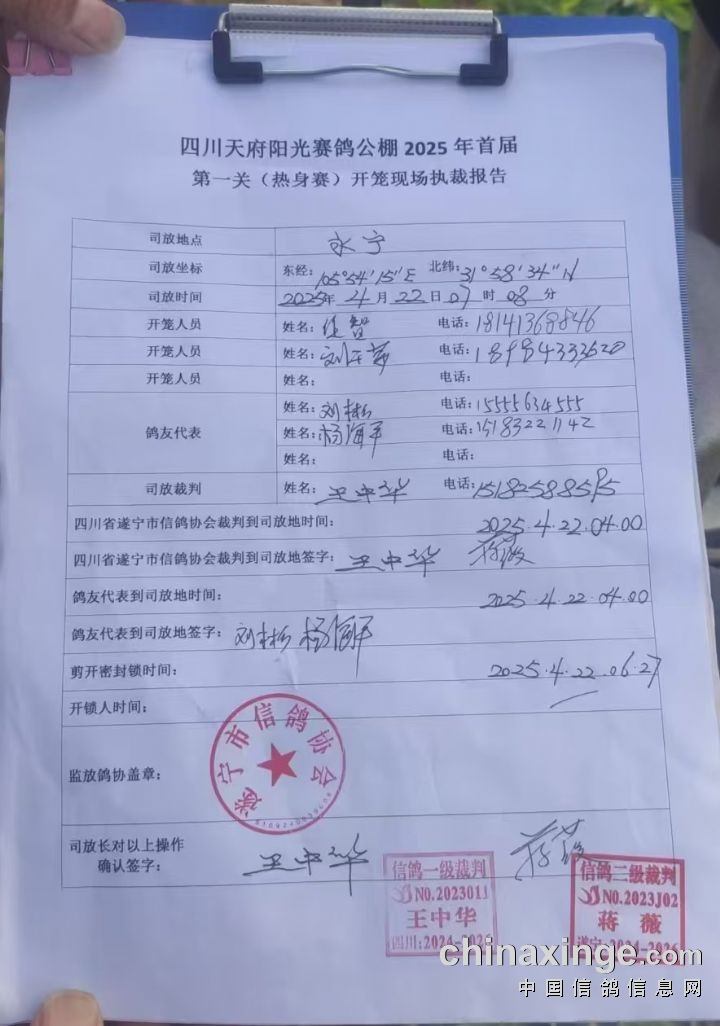 四川天府阳光赛鸽公棚 2025 年首届
第一关（热身赛）开笼现场执裁报告
司放地点 永宁
司放坐标 东经：105°54'15"E 北纬：31°58'34"N
司放时间 2025年 4月 22日 07时 08分
开笼人员 姓名： 电话：18141368846
开笼人员 姓名： 电话：18984333620
开笼人员 姓名： 电话：
姓名：刘彬 电话：15555634555
鸽友代表 姓名：杨海平 电话：15183221142
姓名： 电话：
司放裁判 姓名：王中华 电话：15182588595
四川省遂宁市信鸽协会裁判到司放地时间： 2025.4.22.04.00
四川省遂宁市信鸽协会裁判到司放地签字：王中华 蒋薇
鸽友代表到司放地时间： 2025.4.22.04.00
鸽友代表到司放地签字：刘彬 杨海平
剪开密封锁时间： 2025.4.22.06.27
开锁人时间：
监放鸽协盖章：
遂宁市信鸽协会
司放长对以上操作
确认签字： 王中华 蒋薇
信鸽一级裁判
NO.2023011
王中华
四川:2024-2026
信鸽二级裁判
NO.2023J02
蒋薇
遂宁:2024-2026
chinaxinge.com
中国信鸽信息网